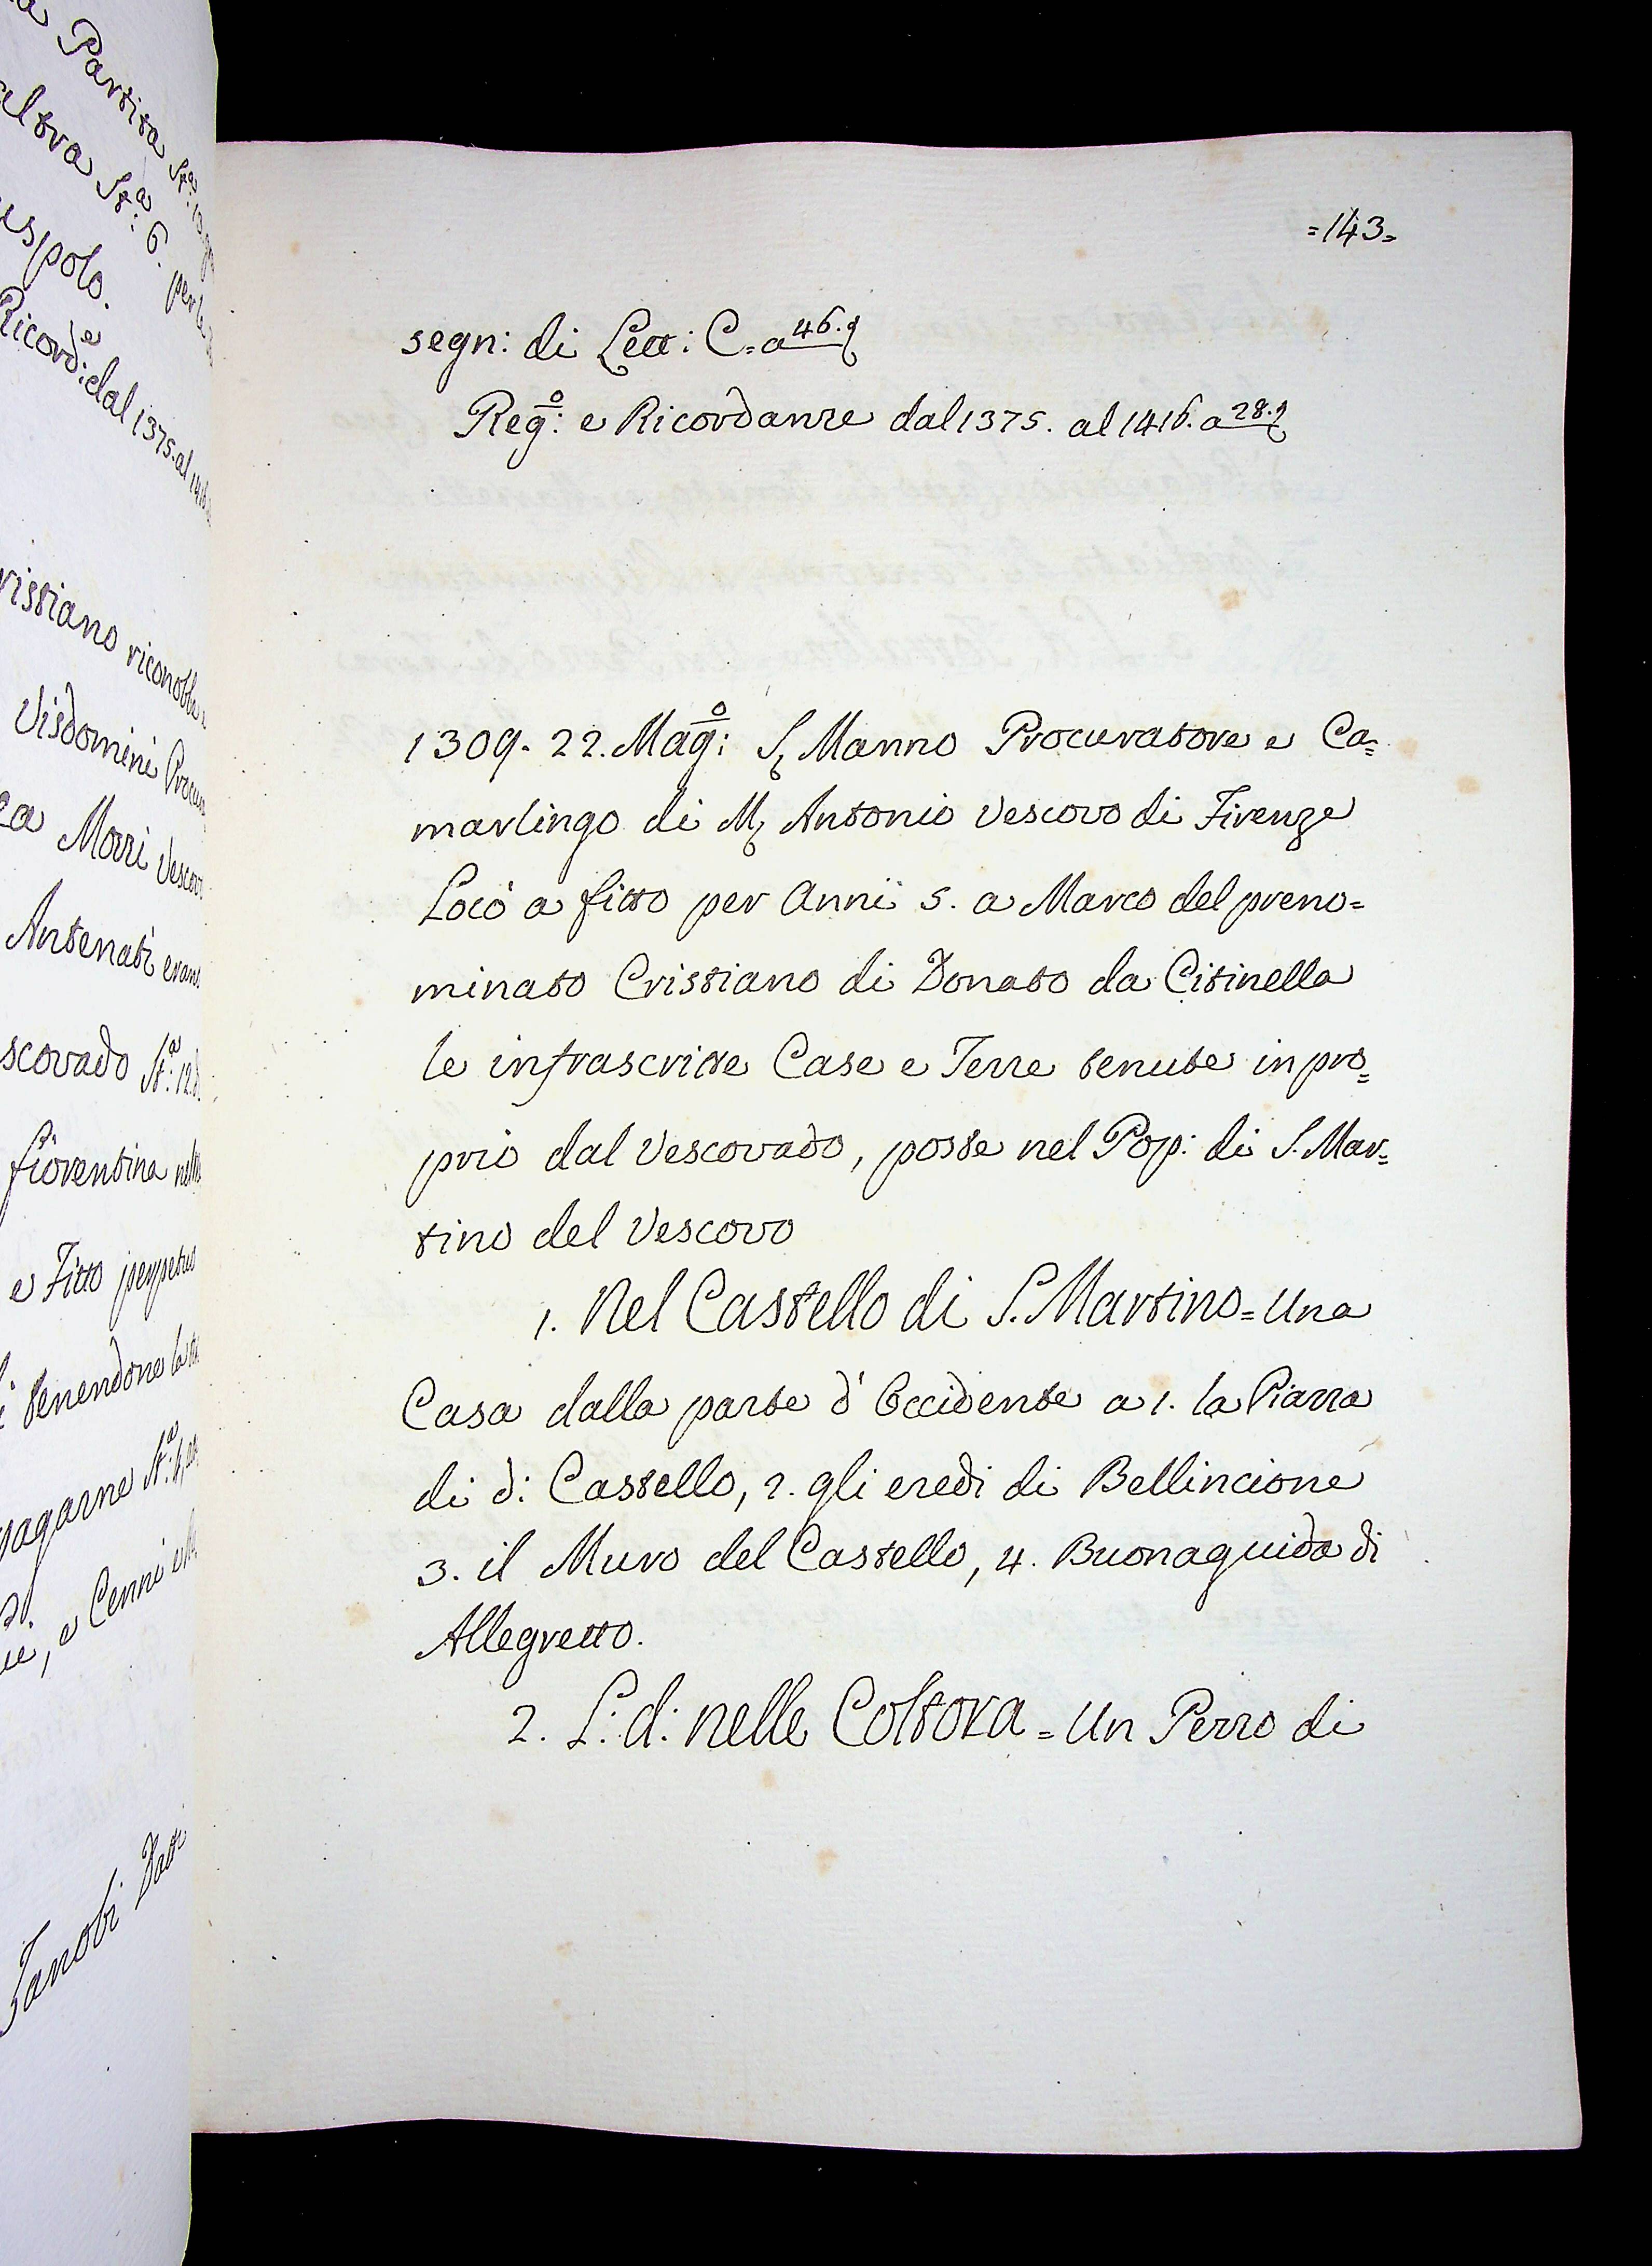 a Partita
altra St:ª 6. per
uspolo.
Ricord:e dal 1375. al
ristiano riconobbe
Visdomini Procu
Mozzi Vescov
Antenati erano
scovado St:ª 12.
fiorentina nel
e Fitto perpetuo
tenendone la
pagarne St:ª
e Cenni
Zanobi
=143=
segn: di Lett: C. a 46.
Reg:º e Ricordanze dal 1375. al 1416. a 28.
1309. 22. Mag:º S. Manno Procuratore e Ca=
marlingo di M. Antonio Vescovo di Firenze
Locò a fitto per Anni 5. a Marco del preno=
minato Cristiano di Donato da Citinella
le infrascritte Case e Terre tenute in pro=
prio dal Vescovado, poste nel Pop: di S. Mar=
tino del Vescovo
1. Nel Castello di S. Martino = Una
Casa dalla parte d'Occidente a 1. la Piazza
di d: Castello, 2. gli eredi di Bellincione
3. il Muro del Castello, 4. Buonaguida di
Allegretto.
2. L: d: nelle Coltora = Un Pezzo di